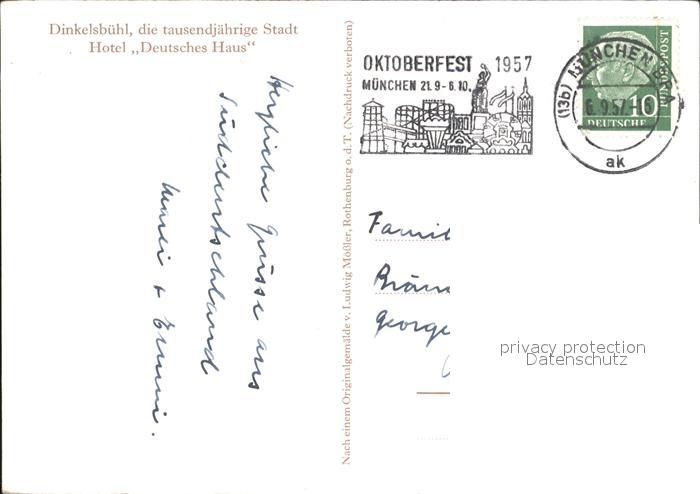 Dinkelsbühl, die tausendjährige Stadt
Hotel „Deutsches Haus“
Herzliche Grüsse aus
Süddeutschland
Marei + Emmi.
Nach einem Originalgemälde v. Ludwig Mößler, Rothenburg o. d. T. (Nachdruck verboten)
OKTOBERFEST 1957
MÜNCHEN 21.9-6.10.
(13b) MÜNCHEN
6.9.57
ak
BUNDESPOST
10
DEUTSCHE
Famil
Bräun
George
privacy protection
Datenschutz